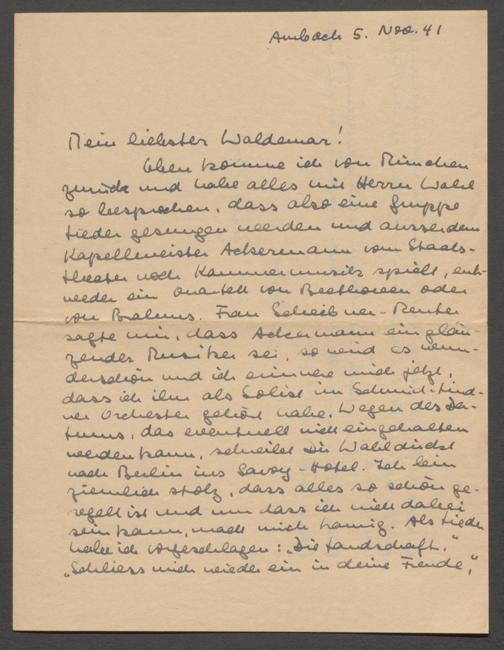 Ambach 5. Nov. 41
Mein liebster Waldemar!
Eben komme ich von München
zurück und habe alles mit Herrn Wahl
so besprochen, dass also eine Gruppe
Lieder gesungen werden und ausserdem
Kapellmeister Ackermann vom Staats-
theater noch Kammermusik spielt, ent-
weder ein Quartett von Beethoven oder
von Brahms. Frau Scheibner-Reuter
sagte mir, dass Ackermann ein glän-
zender Musiker sei, so wird es wun-
derschön und ich erinnere mich jetzt,
dass ich ihn als Solist im Schmid-Lind-
ner Orchester gehört habe. Wegen des Da-
tums, das eventuell nicht eingehalten
werden kann, schreibt Dir Wahl direkt
nach Berlin ins Savoy-Hotel. Ich bin
ziemlich stolz, dass alles so schön ge-
regelt ist und nur dass ich nicht dabei
sein kann, macht mich traurig. Als Lieder
habe ich vorgeschlagen: „Die Landschaft",
„Schliess mich wieder ein in deine Freude",